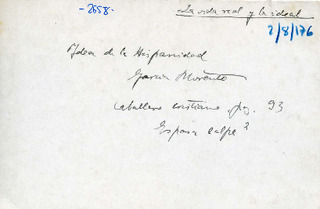 -2658-
La vida real y la ideal
2/8/176
Idea de la Hispanidad
García Morente
Caballero cristiano pag. 93
Espasa calpe